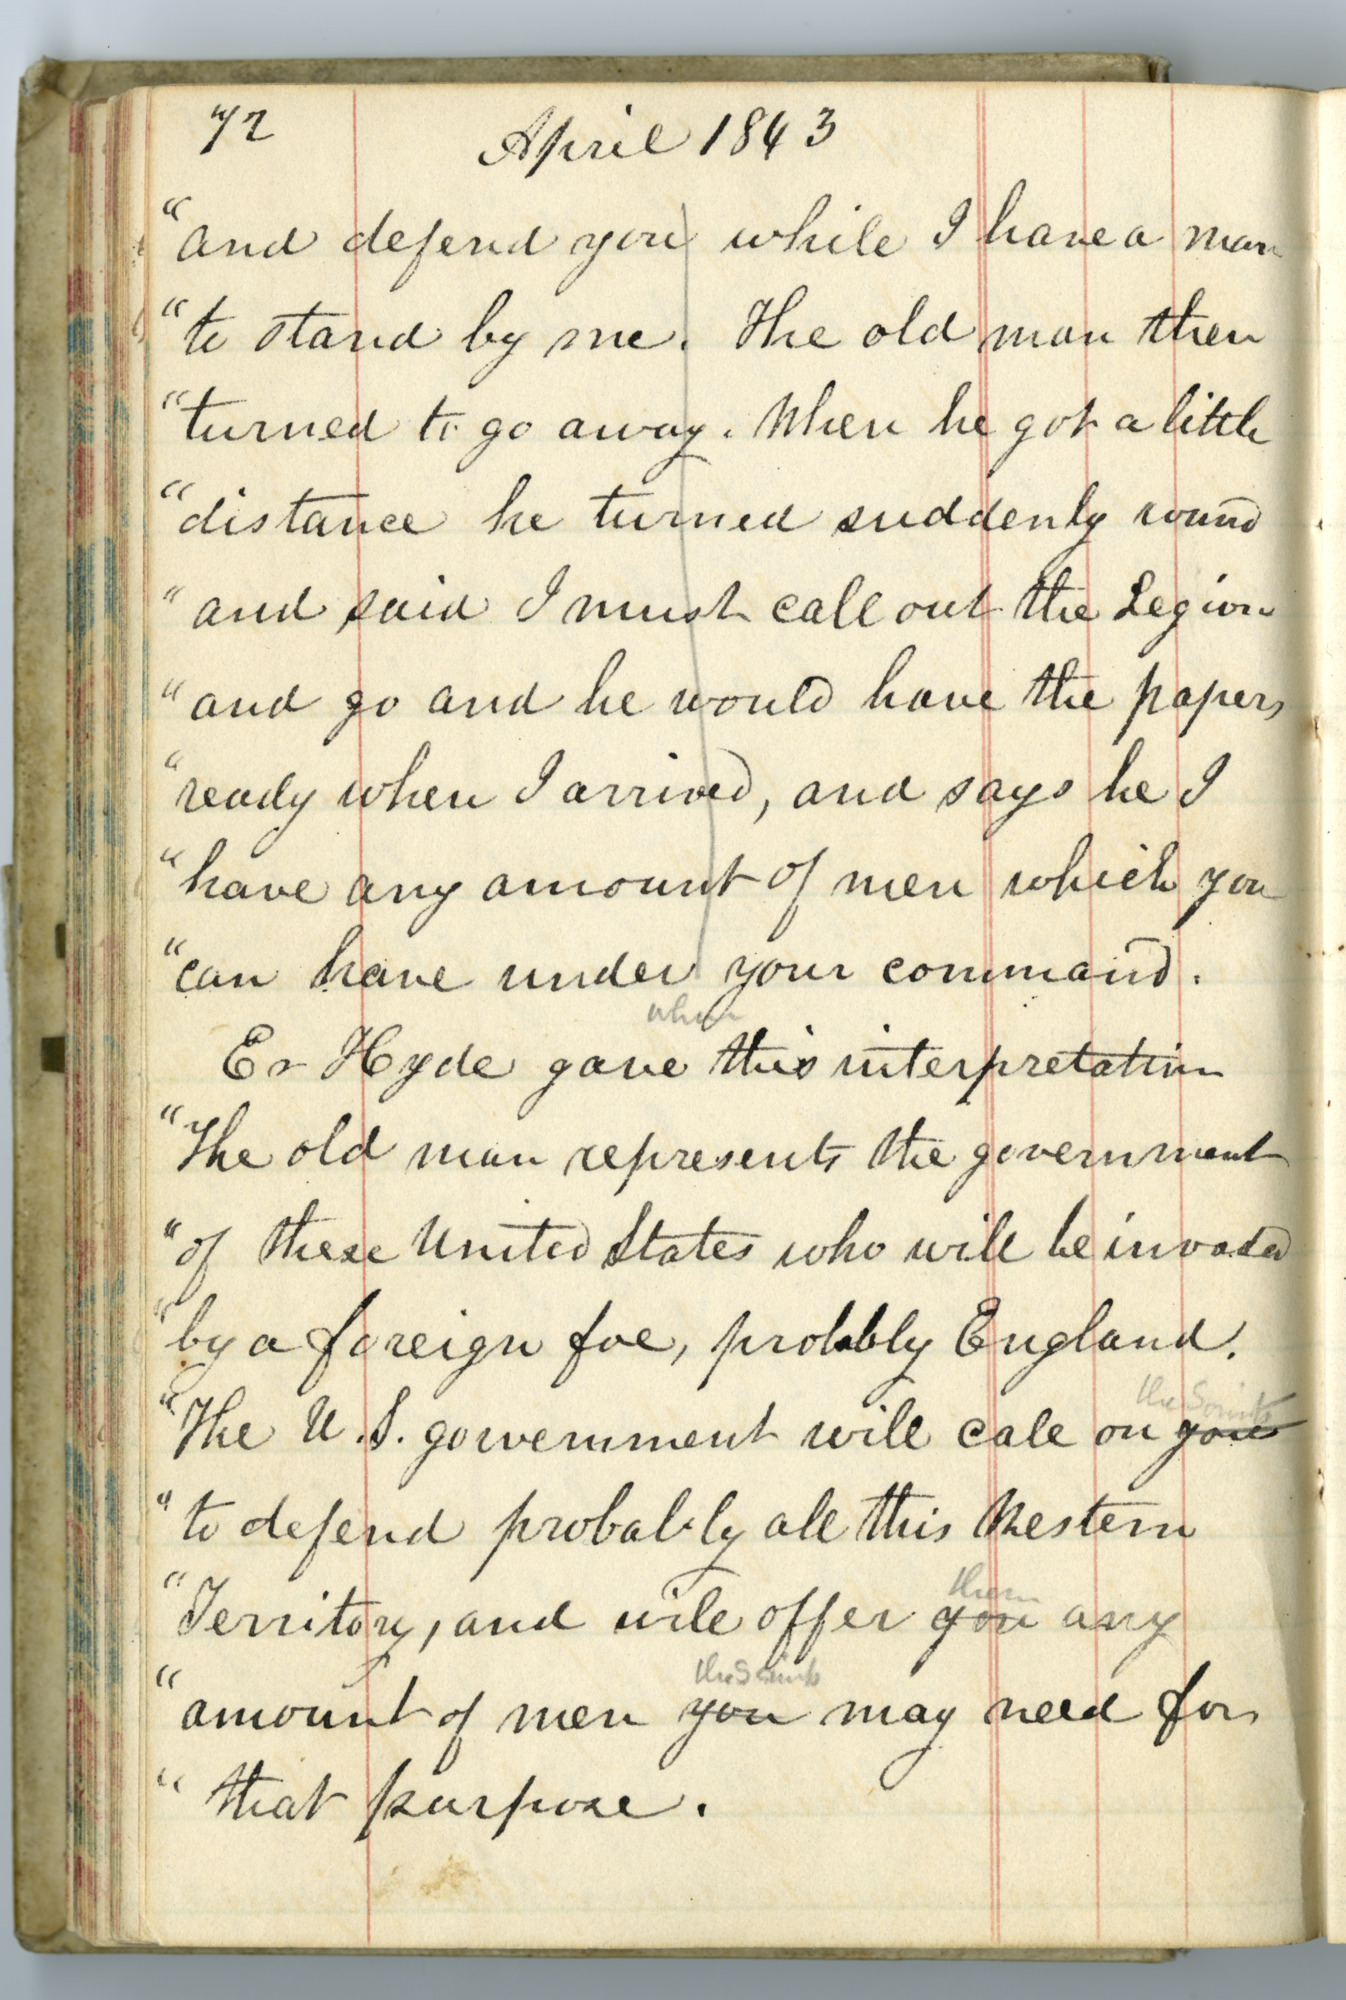 72 April 1843
"and defend you while I have a man
"to stand by me. The old man then
"turned to go away. When he got a little
"distance he turned suddenly round
"and said I must call out the Legion
"and go and he would have the papers
"ready when I arrived, and says he I
"have any amount of men which you
"can have under your command.
when
Er Hyde gave this interpretation
"The old man represents the government
"of these United States who will be invaded
"by a foreign foe, probbly England.
the Saints
"The U.S. government will call on you
"to defend probably all this Western
them
"Territory, and will offer you any
the Saints
"amount of men you may need for
"that purpose.